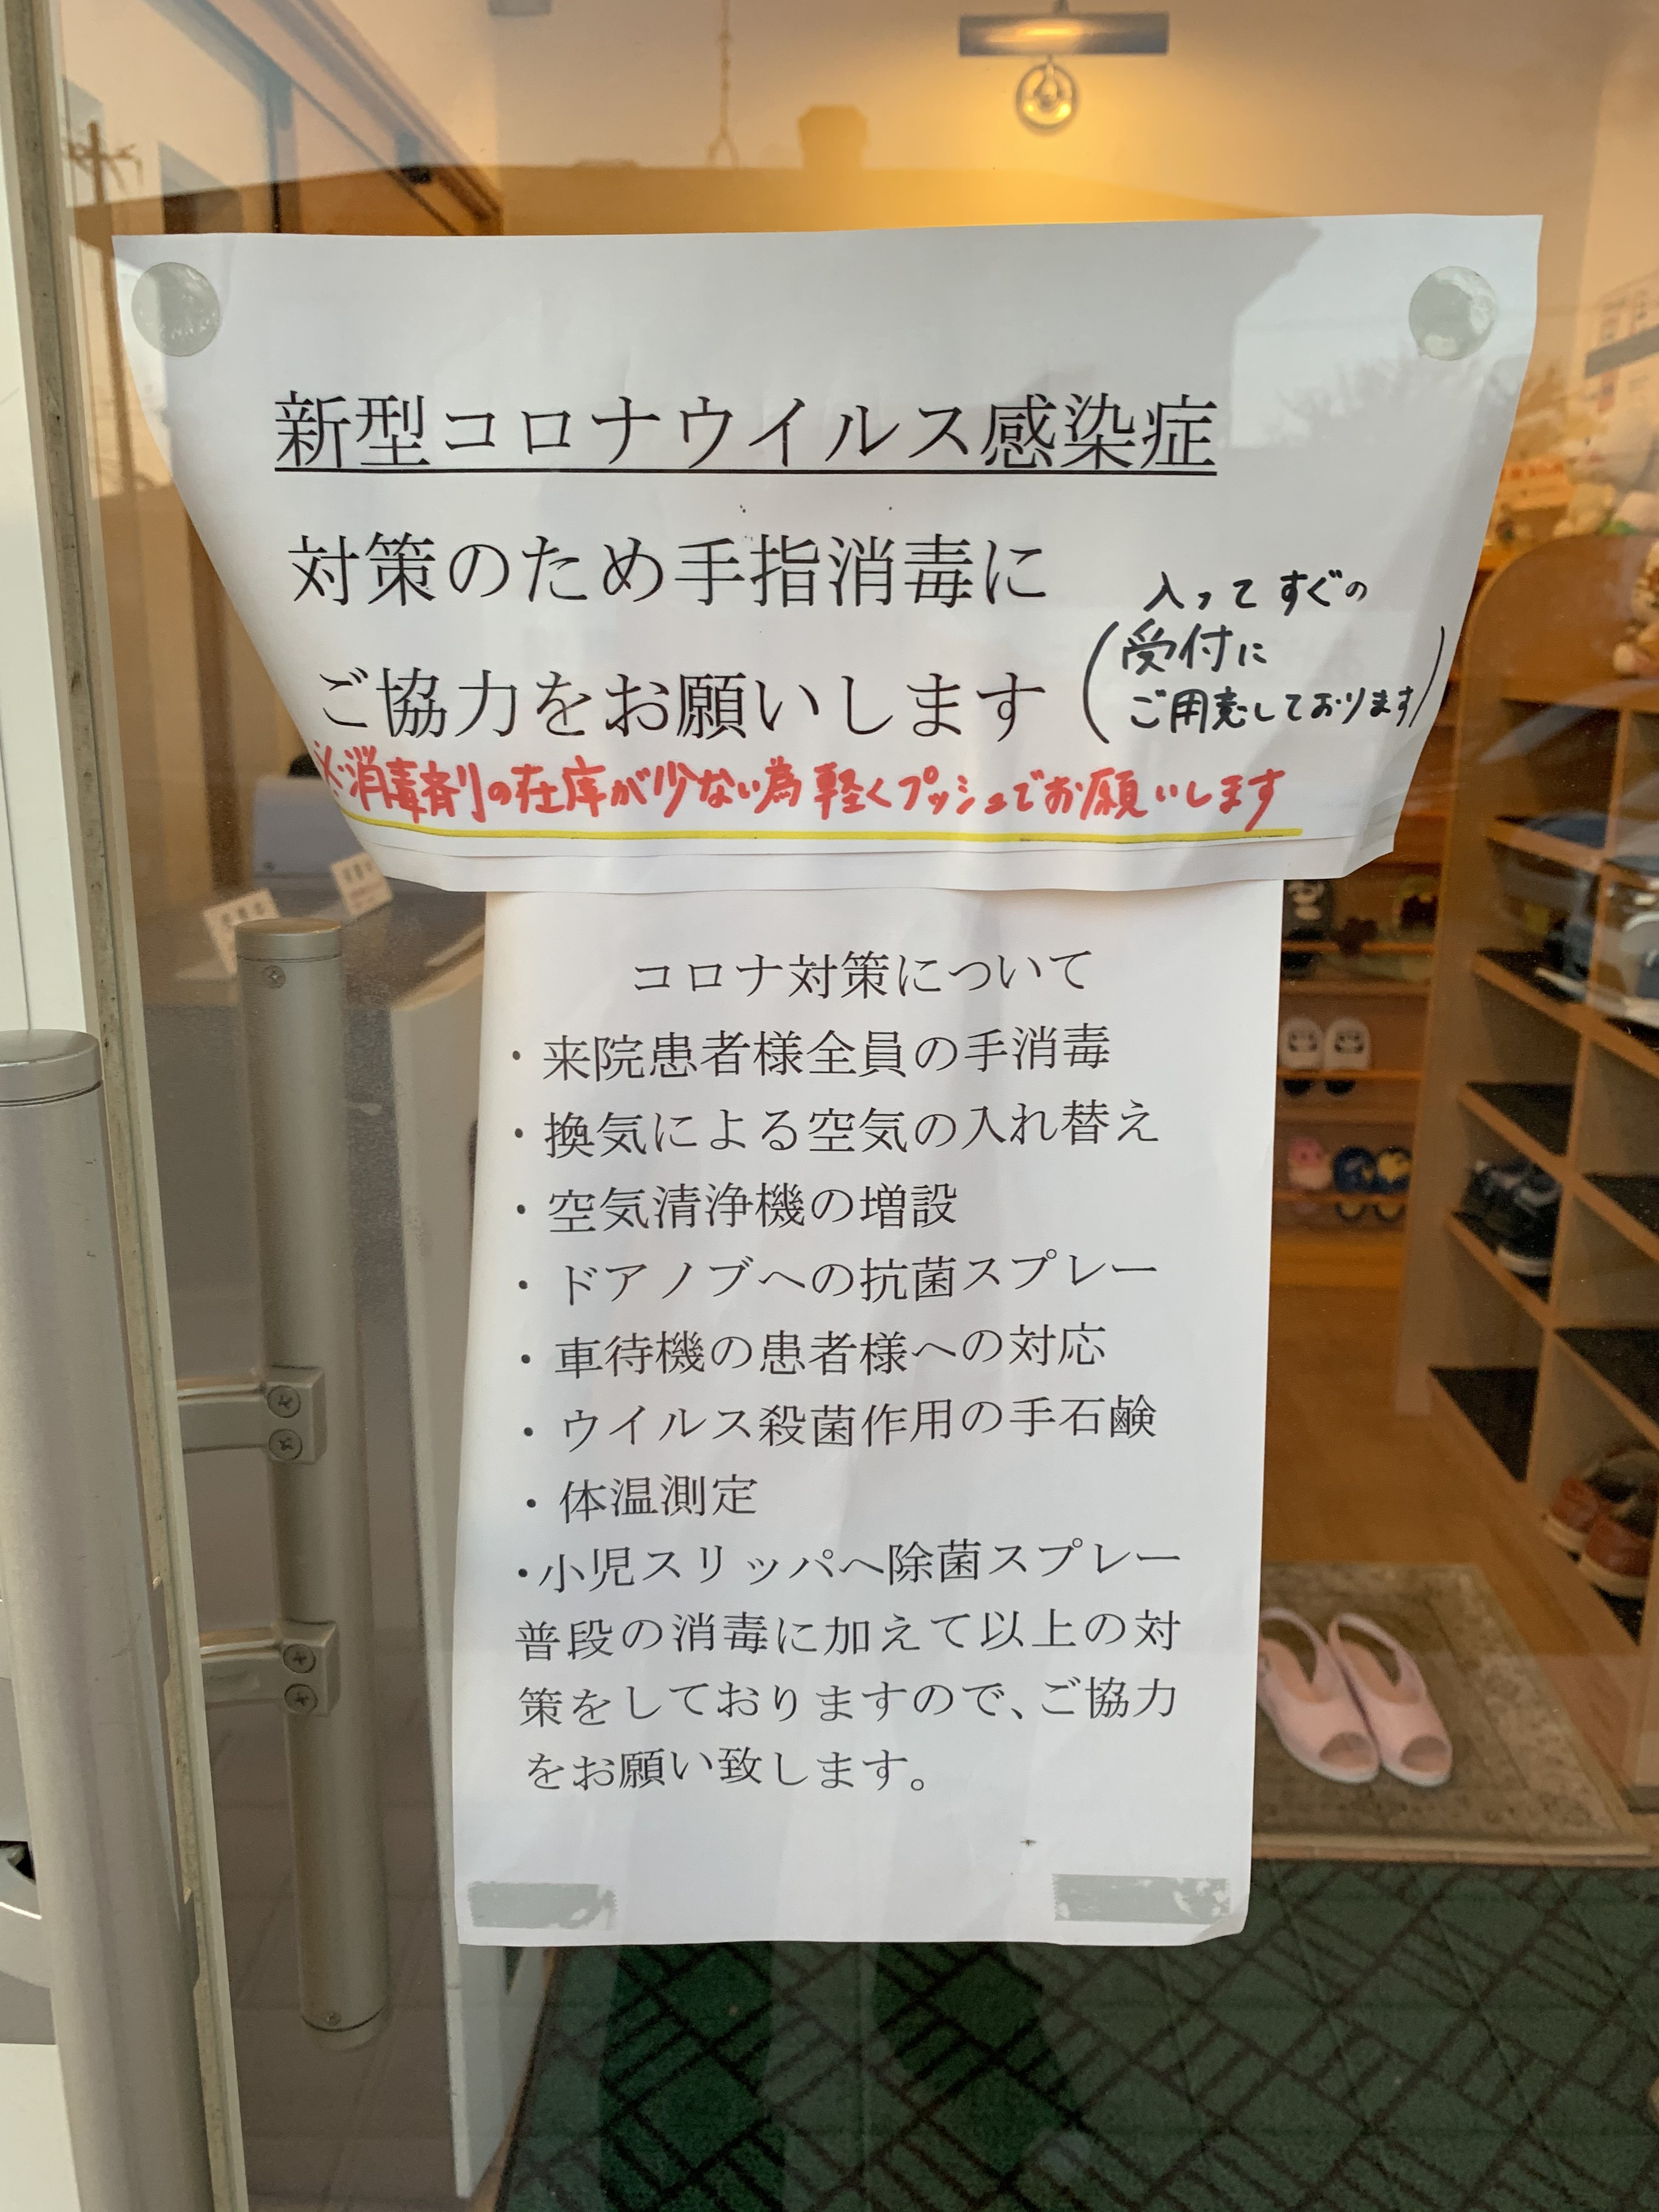 新型コロナウイルス感染症
対策のため手指消毒に
ご協力をお願いします
(入ってすぐの
受付に
ご用意しております)
※消毒剤の在庫が少ない為軽くプッシュでお願いします
コロナ対策について
・来院患者様全員の手消毒
・換気による空気の入れ替え
・空気清浄機の増設
・ドアノブへの抗菌スプレー
・車待機の患者様への対応
・ウイルス殺菌作用の手石鹸
・体温測定
・小児スリッパへ除菌スプレー
普段の消毒に加えて以上の対
策をしておりますので、ご協力
をお願い致します。